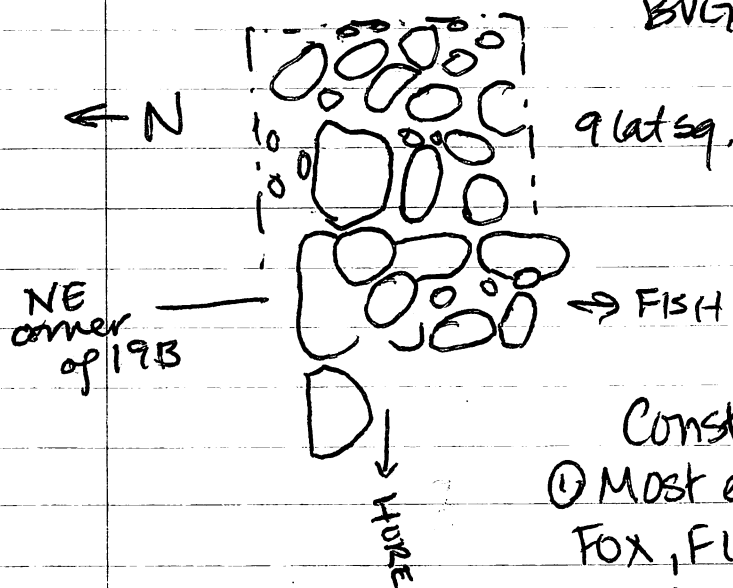 BVG
N
9 lat sq.
NE
corner
of 19B
FISH
Const
① Most e
FOX, FL
HORE